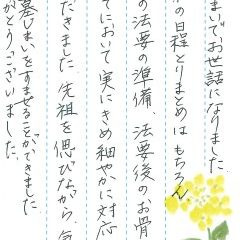 まいでお世話になりました
の日程とりまとめはもちろん、
の法要の準備、法要後のお骨
てにおいて実にきめ細やかに対応
だきました。先祖を偲びながら、気
墓じまいをすませることができました
がとうございました。